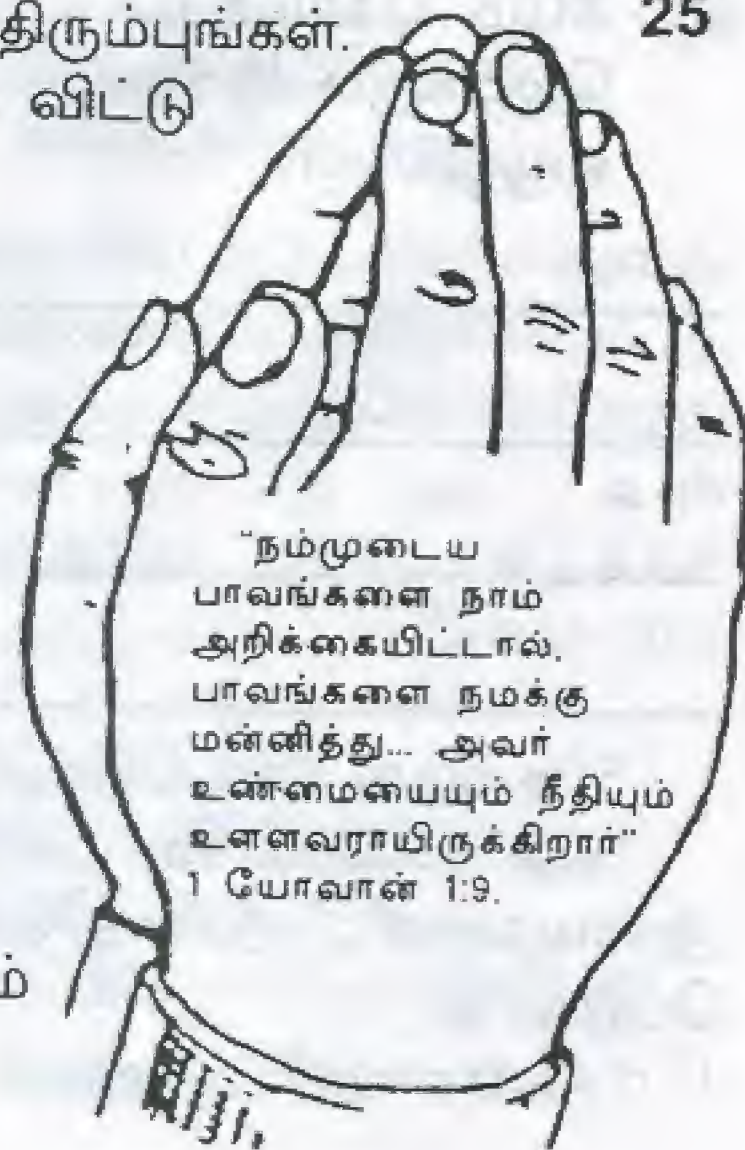 திரும்புங்கள்.
25
விட்டு
"நம்முடைய
பாவங்களை நாம்
அறிக்கையிட்டால்,
பாவங்களை நமக்கு
மன்னித்து... அவர்
உண்மையையும் நீதியும்
உள்ளவராயிருக்கிறார்"
1 யோவான் 1:9.
ம்